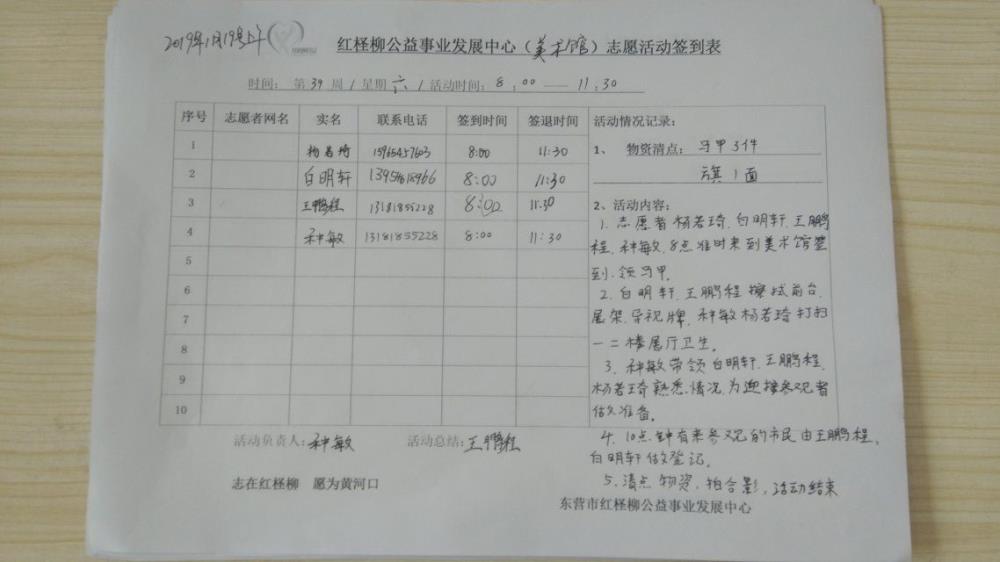 2019年1月19号上午
红柽柳公益事业发展中心（美术馆）志愿活动签到表
时间：第39周/星期六/活动时间：8：00——11:30
序号 志愿者网名 实名 联系电话 签到时间 签退时间 活动情况记录：
1 杨若琦 15965457603 8:00 11:30
1、物资清点：马甲3件
旗1面
2 白明轩 8:00 11:30
3 王鹏程 13181855228 8:00 11:30
4 种敏 13181855228 8:00 11:30
5
6
7
8
9
10
2、活动内容：
1.志愿者杨若琦.白明轩.王鹏
程.种敏.8点准时来到美术馆签
到.领马甲.
2.白明轩.王鹏程擦拭前台.
展架.导视牌.种敏杨若琦打扫
一二楼展厅卫生.
3.种敏带领白明轩.王鹏程.
杨若琦熟悉情况,为迎接参观者
做准备.
4.10点钟有来参观的市民由王鹏程.
白明轩做登记.
5.清点物资.拍合影,活动结束
活动负责人：种敏 活动总结：王鹏程
志在红柽柳 愿为黄河口
东营市红柽柳公益事业发展中心